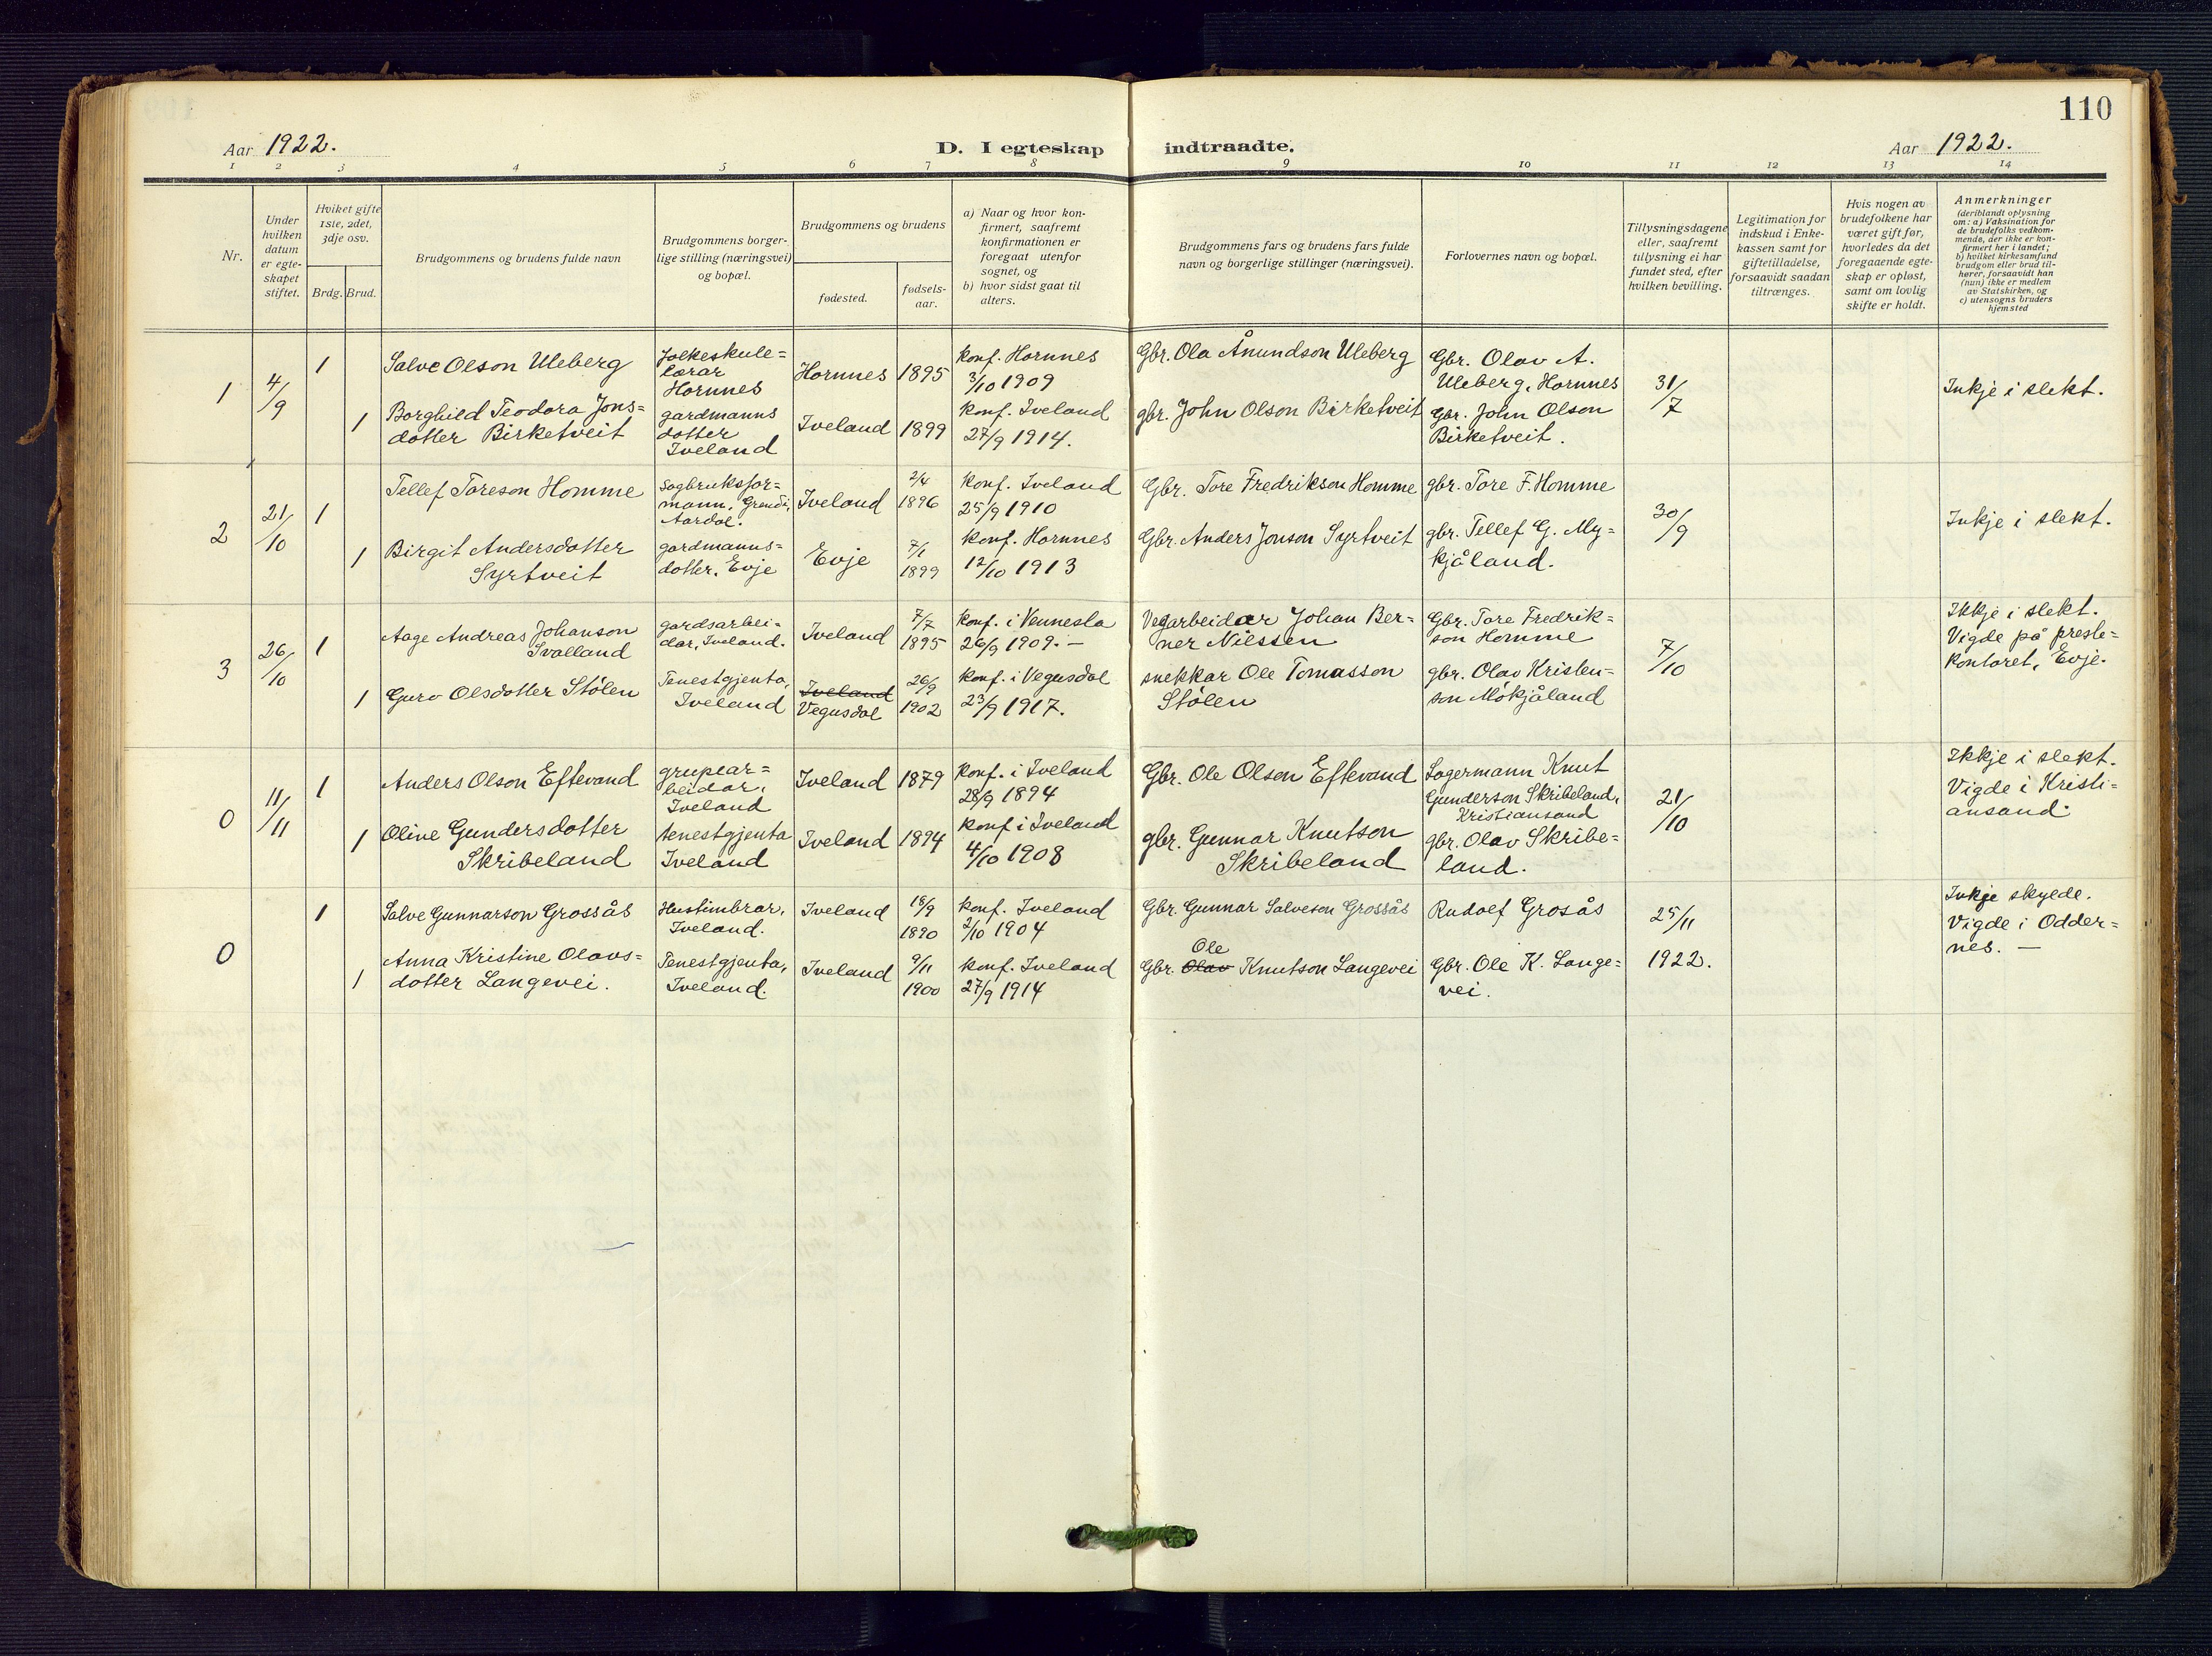 110
Aar 1922.
D. I egteskap indtraadte.
Aar 1922.
1 2 3 4 5 6 7 8 9 10 11 12 13 14
Nr.
Under
hvilken
datum
er egte-
skapet
stiftet.
Hviket gifte
1ste, 2det,
3dje osv.
Brdg. Brud.
Brudgommens og brudens fulde navn
Brudgommens borger-
lige stilling (næringsvei)
og bopæl.
Brudgommens og brudens
fødested.
fødsels-
aar.
a) Naar og hvor kon-
firmert, saafremt
konfirmationen er
foregaat utenfor
sognet, og
b) hvor sidst gaat til
alters.
Brudgommens fars og brudens fars fulde
navn og borgerlige stillinger (næringsvei).
Forlovernes navn og bopæl.
Tillysningsdagene
eller, saafremt
tillysning ei har
fundet sted, efter
hvilken bevilling.
Legitimation for
indskud i Enke-
kassen samt for
giftetilladelse,
forsaavidt saadan
tiltrænges.
Hvis nogen av
brudefolkene har
været gift før,
hvorledes da det
foregaaende egte-
skap er opløst,
samt om lovlig
skifte er holdt.
Anmerkninger
(deriblandt oplysning
om: a) Vaksination for
de brudefolks vedkom-
mende, der ikke er kon-
firmert her i landet;
b) hvilket kirkesamfund
brudgom eller brud til-
hører, forsaavidt han
(hun) ikke er medlem
av Statskirken, og
c) utensogns bruders
hjemsted
1
4/9
1
Salve Olson Uleberg
Folkeskule=
lærar
Hornnes
Hornnes
1895
konf. Hornnes
3/10 1909
Gbr. Ola Ånundson Uleberg
Gbr. Olav A.
Uleberg, Hornnes
31/7
Inkje i slekt.
1
Borghild Teodora Jons=
dotter Birketveit
gardmanns
dotter
Iveland
Iveland
1899
konf. Iveland
27/9 1914.
gbr. John Olson Birketveit
Gbr. John Olson
Birketveit.
2
21/10
1
Tellef Toreson Homme
Sagbruksfor=
mann, Grendi,
Aardal.
Iveland
2/4
1896
konf. Iveland
25/9 1910
Gbr. Tore Fredrikson Homme
gbr. Tore F. Homme
30/9
Inkje i slekt.
1
Birgit Andersdotter
Syrtveit
gardmanns=
dotter, Evje
Evje
7/1
1899
konf. Hornnes
12/10 1913
Gbr. Anders Jonson Syrtveit
gbr. Tellef G. My=
kjåland.
3
26/10
1
Aage Andreas Johanson
Svalland
gardsarbei=
dar, Iveland.
Iveland
7/7
1895
konf. i Vennesla
26/9 1909. —
Vegarbeidar Johan Ber=
ner Nilssen
Gbr. Tore Fredrik=
son Homme
7/10
Ikkje i slekt.
Vigde på preste=
kontoret, Evje.
1
Guro Olsdotter Stölen
Tenestgjenta,
Iveland
Iveland
Vegusdal
26/9
1902
konf. i Vegusdal
23/9 1917.
snekkar Ole Tomasson
Stölen
gbr. Olav Kristen=
son Mökjåland
0
11/11
1
Anders Olson Eftevand
gruvear=
beidar,
Iveland
Iveland
1879
konf. i Iveland
28/9 1894
Gbr. Ole Olson Eftevand
Lagermann Knut
Gunderson Skribeland,
Kristiansand
21/10
Ikkje i slekt.
Vigde i Kristi=
ansand.
1
Oline Gundersdotter
Skribeland
tenestgjenta
Iveland
Iveland
1894
konf i Iveland
4/10 1908
gbr. Gunnar Knutson
Skribeland
gbr. Olav Skribe=
land.
0
1
Salve Gunnarson Grossås
Hustimbrar,
Iveland.
Iveland
18/9
1890
konf. Iveland
2/10 1904
Gbr. Gunnar Salveson Grossås
Rudolf Grosås
25/11
1922.
Inkje skylde.
Vigde i Odder=
nes. —
1
Anna Kristine Olavs=
dotter Langevei.
Tenestgjenta,
Iveland.
Iveland
9/11
1900
konf. Iveland
27/9 1914
Ole
Gbr. Olav Knutson Langevei
Gbr. Ole K. Lange=
vei.